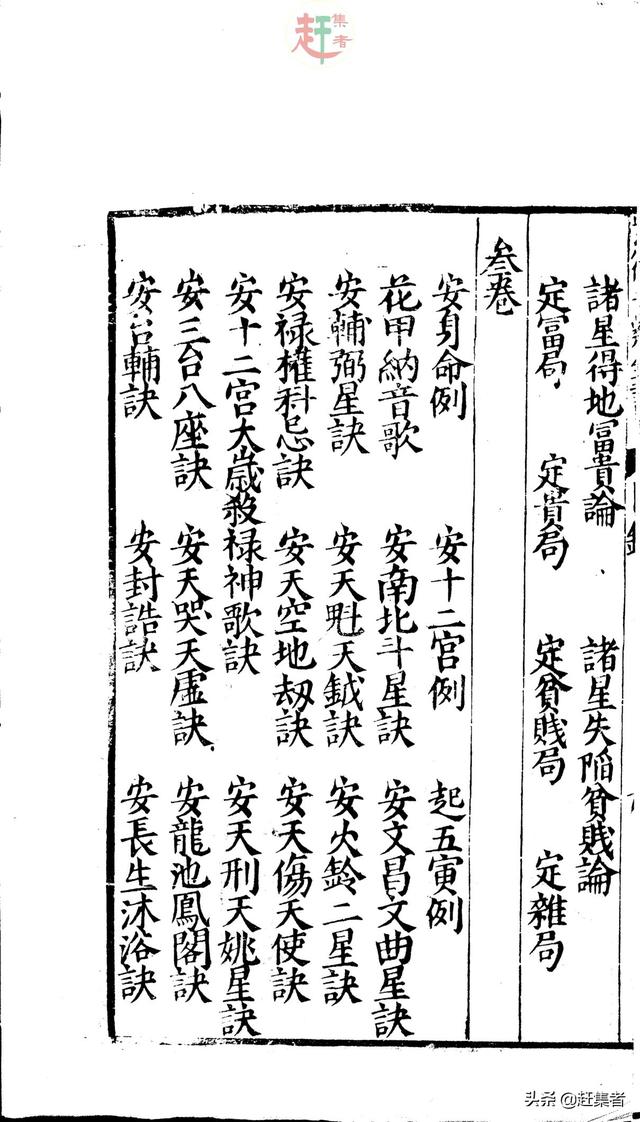 赶集者
諸星得地富貴論 諸星失陷貧賎論
定富局 定貴局 定貧賎局 定雜局
叄卷
安身命例 安十二宫例 起五寅例
花甲納音歌 安南北斗星訣 安文昌文曲星訣
安輔弼星訣 安天魁天鉞訣 安火鈴二星訣
安禄權科忌訣 安天空地刼訣 安天傷天使訣
安十二宫太歲殺禄神歌訣 安天刑天姚星訣
安三台八座訣 安天哭天虚訣 安龍池鳳閣訣
安台輔訣 安封誥訣 安長生沐浴訣
头条 @赶集者